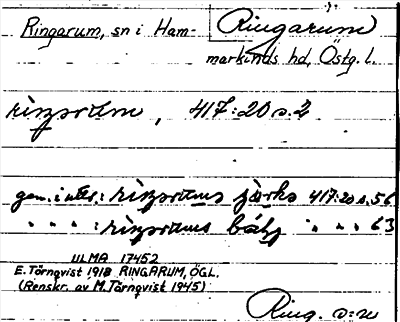 Ringarum, sn i Ham- Ringarum
markinds hd, Östg. l.
ringarum, 417:20 s. 2
gen. i uttr.: ringarums 417:20 s. 56
" " " : ringarums " " " 63
ULMA 17452
E. Törnqvist 1918 RINGARUM, ÖGL.
(Renskr. av M. Törnqvist 1945)
Ring. s:n